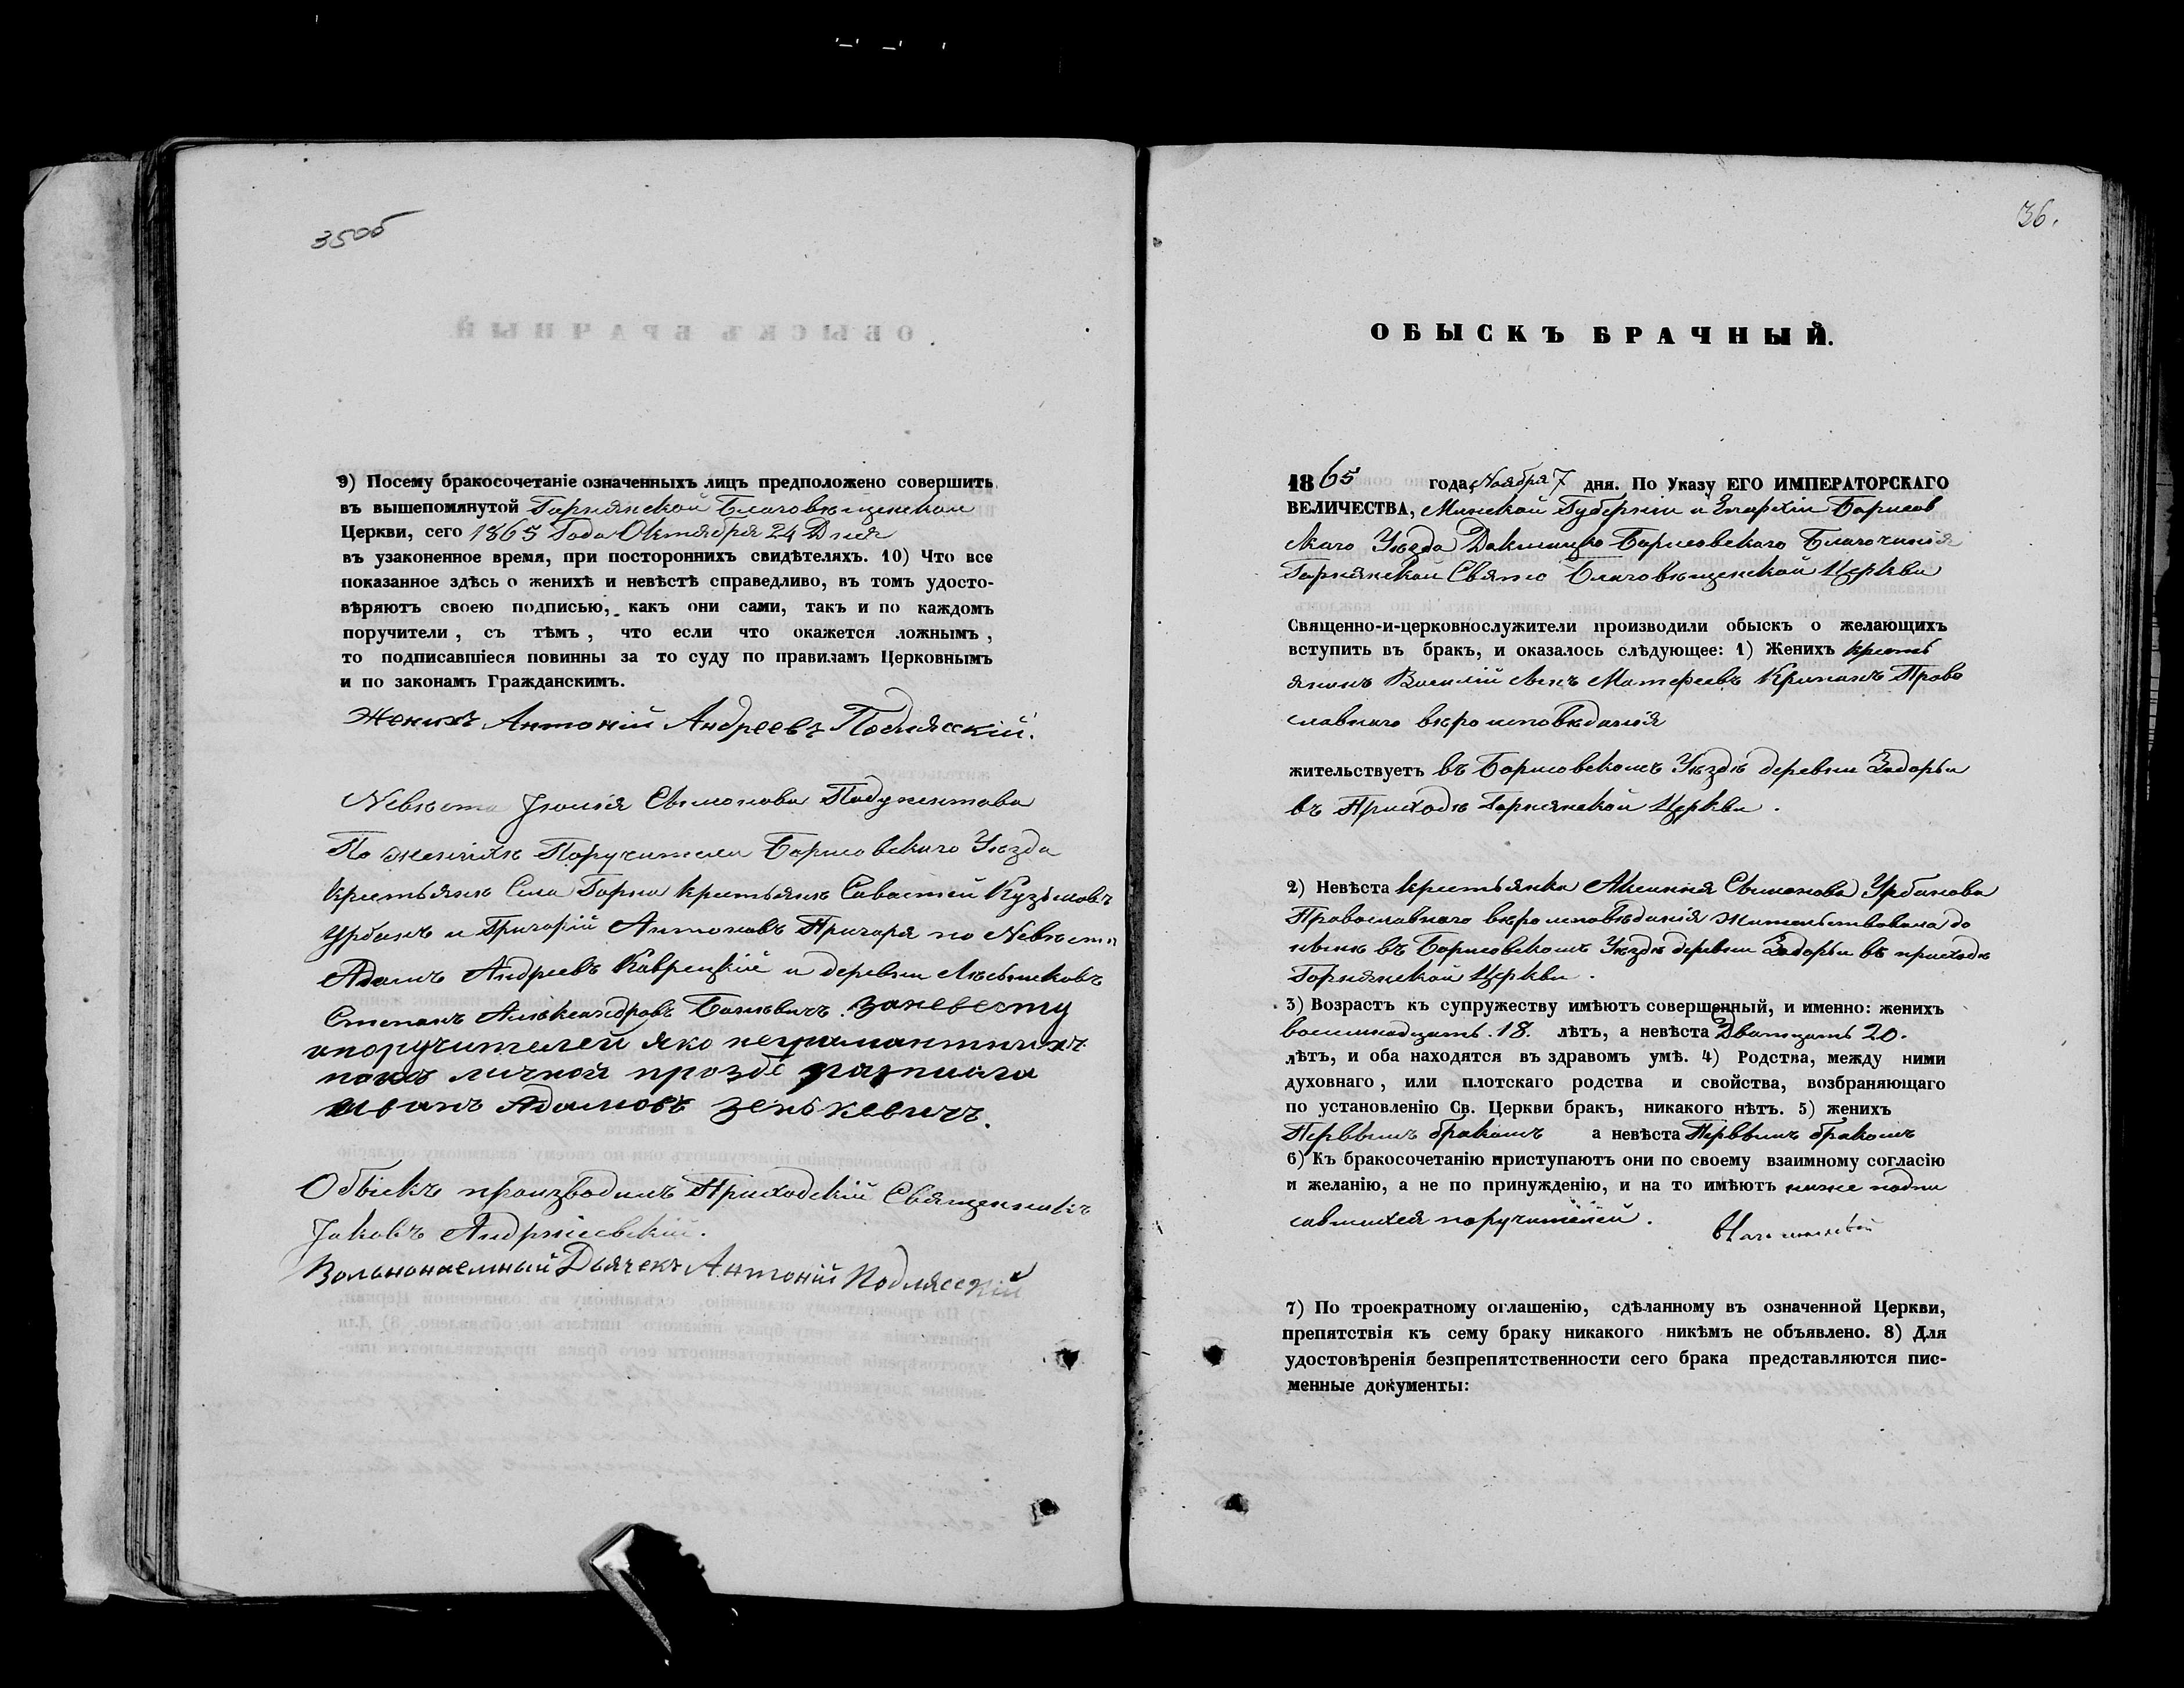 35об
9) Посему бракосочетаніе означенныхъ лицъ предположено совершить
въ вышепомянутой Горнянской Благовѣщенской
Церкви, сего 1865 Года Октября 24 Дня
въ узаконенное время, при постороннихъ свидѣтеляхъ. 10) Что все
показанное здѣсь о женихѣ и невѣстѣ справедливо, въ томъ удосто-
вѣряютъ своею подписью, какъ они сами, такъ и по каждомъ
поручители, съ тѣмъ, что если что окажется ложнымъ,
то подписавшіеся повинны за то суду по правиламъ Церковнымъ
и по законамъ Гражданскимъ.
Женихъ Антоній Андреевъ Подлясскій.
Невѣста Симонова
По женихѣ Поручители Борисовскаго Уѣзда
Села Горна Савастей Кузьмовъ
Урбанъ и Григорій Антоновъ по Невѣстѣ
Адамъ Андреевъ и деревни
Степанъ Александровъ заневесту
ипоручителей яко неграмантныхъ
поихъ личной прозбе
иванъ Адамовъ зенькевичъ.
Обыскъ производилъ Приходскій Священникъ
Іаковъ Андржіевскій.
Вольнонаемный Дьячекъ Антоній Подлясскій
36.
ОБЫСКЪ БРАЧНЫЙ.
1865 года, Ноября 7 дня. По Указу ЕГО ИМПЕРАТОРСКАГО
ВЕЛИЧЕСТВА, Минской Губерніи и Епархіи Борисов
скаго Уѣзда Докшицко Борисовскаго Благочинія
Горнянской Свято Благовѣщенской Церкви
Священно-и-церковнослужители производили обыскъ о желающихъ
вступить въ бракъ, и оказалось слѣдующее: 1) Женихъ кресть
янинъ Василій сынъ Матфеевъ Право
славнаго вѣроисповѣданія
жительствуетъ въ Борисовскомъ Уѣздѣ деревни Задорьи
въ Приходѣ Горнянской Церкви.
2) Невѣста крестьянка Симонова Урбанова
Православнаго вѣроисповѣданія жительствовала до
нынѣ въ Борисовскомъ Уѣздѣ деревни Задорьи въ приходѣ
Горнянской Церкви.
3) Возрастъ къ супружеству имѣютъ совершенный, и именно: женихъ
восимнадцать. 18. лѣтъ, а невѣста Дватцать 20.
лѣтъ, и оба находятся въ здравомъ умѣ. 4) Родства, между ними
духовнаго, или плотскаго родства и свойства, возбраняющаго
по установленію Св. Церкви бракъ, никакого нѣтъ. 5) женихъ
Перввымъ бракомъ а невѣста Перввымъ бракомъ
6) Къ бракосочетанію приступаютъ они по своему взаимному согласію
и желанію, а не по принужденію, и на то имѣютъ ниже подпи
савшихся поручителей.
7) По троекратному оглашенію, сдѣланному въ означенной Церкви,
препятствія къ сему браку никакого никѣмъ не объявлено. 8) Для
удостовѣренія безпрепятственности сего брака представляются пис-
менные документы: